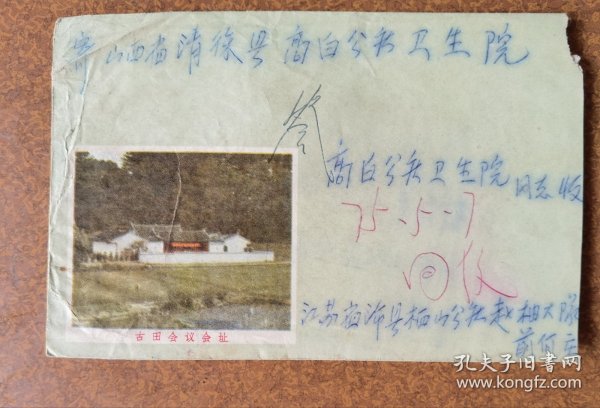 寄 山西省清徐县高白公社卫生院
答
高白公社卫生院同志收
75.5-7
回
江苏省沛县栖山公社赵相大队
前何庄
古田会议会址
孔夫子旧书网
www.kongfz.com